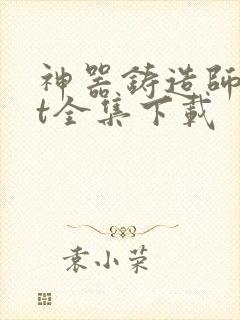 神器铸造師
t全集下載
袁小荣